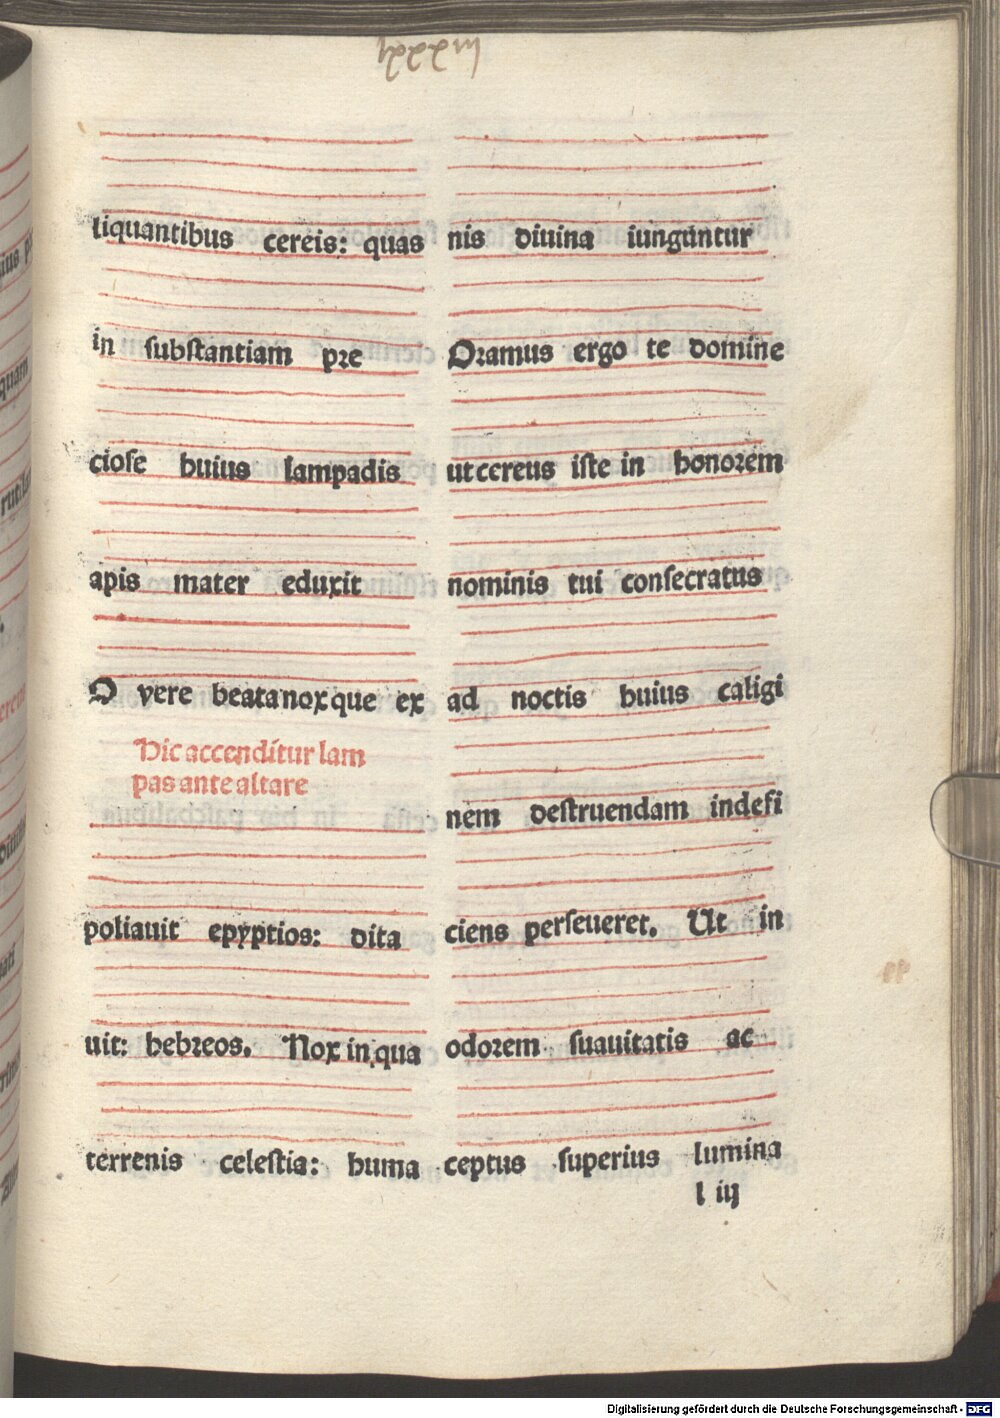 lxxxiij
liquantibus cereis: quas
in substantiam pre
ciose huius lampadis
apis mater eduxit
O vere beata nox que ex
Hic accenditur lam
pas ante altare
poliauit epyptios: dita
uit: hebreos. Nox in qua
terrenis celestia: huma
nis diuina iunguntur
Oramus ergo te domine
ut cereus iste in honorem
nominis tui consecratus
ad noctis huius caligi
nem destruendam indefi
ciens perseueret. Ut in
odorem suauitatis ac
ceptus superius lumina
l iij
Digitalisierung gefördert durch die Deutsche Forschungsgemeinschaft - DFG